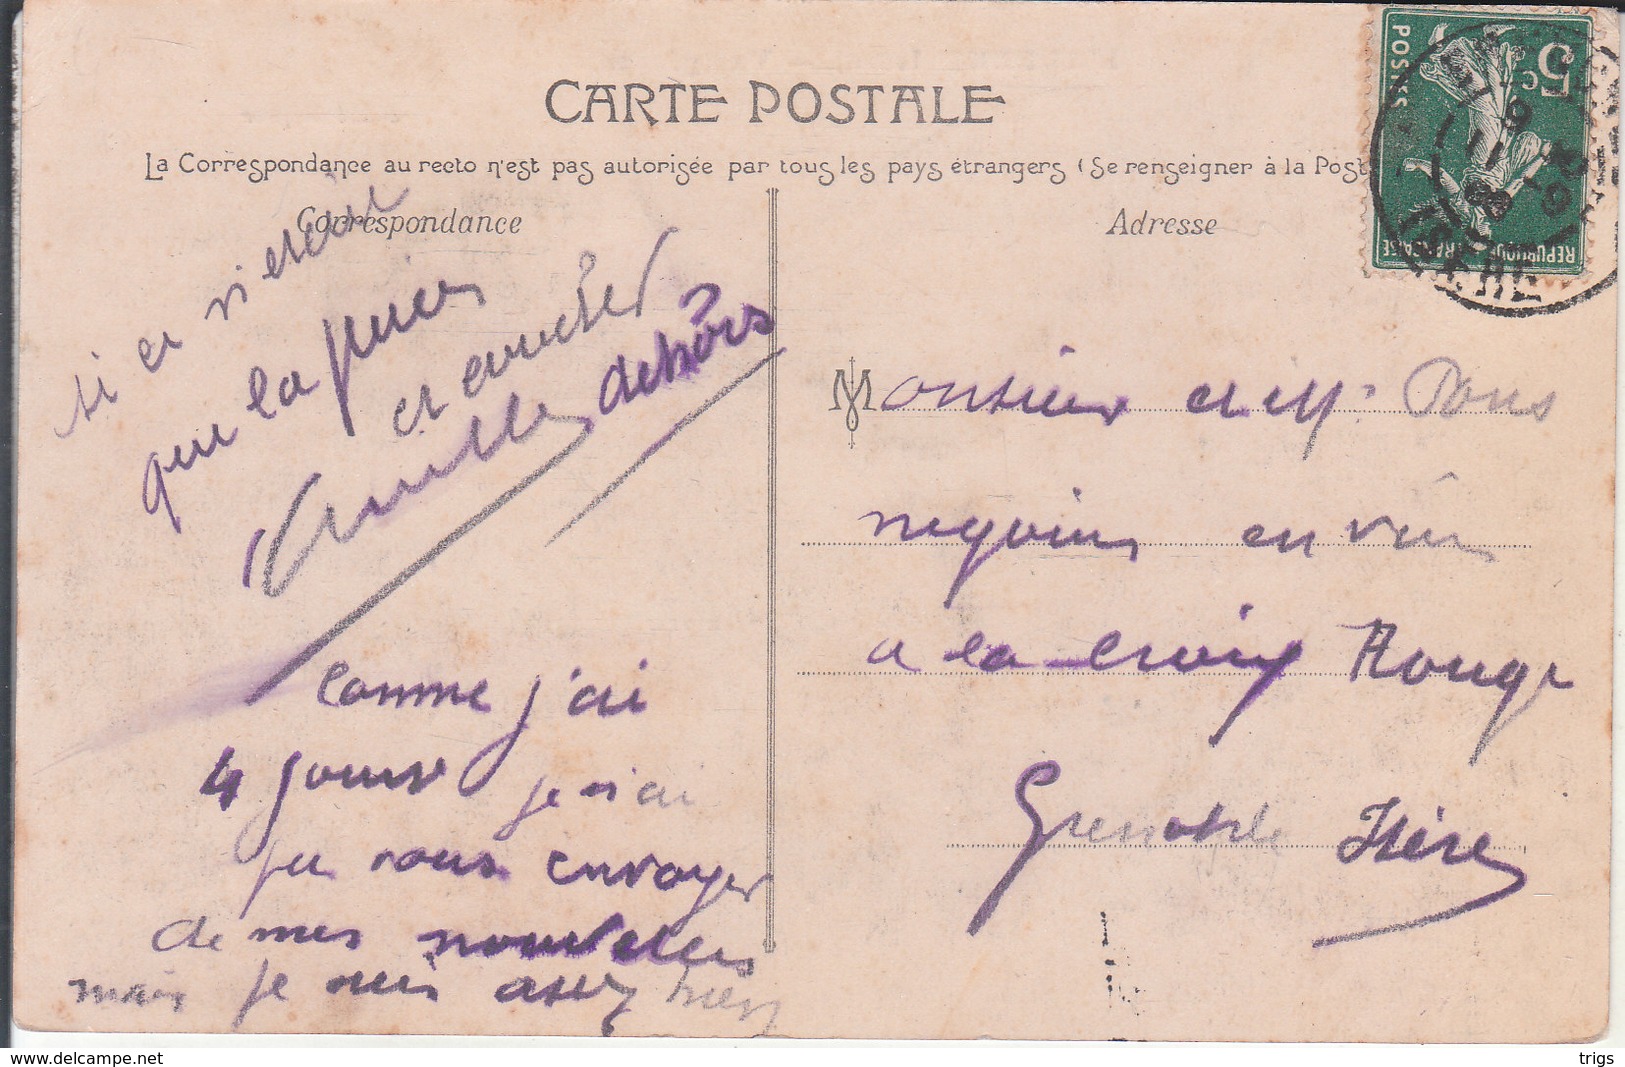 CARTE POSTALE
La Correspondance au recto n'est pas autorisée par tous les pays étrangers (Se renseigner à la Post
Correspondance
Adresse
5c
POSTES
REPUBLIQUE FRANÇAISE
si ce n'était
que la
et coucher
dehors
comme j'ai
4 jours je n'ai
pu vous envoyer
de mes nouvelles
mais je suis assez bien
Monsieur et M. Pons
negocins en vins
a la croix Rouge
Grenoble Isère
www.delcampe.net
trigs